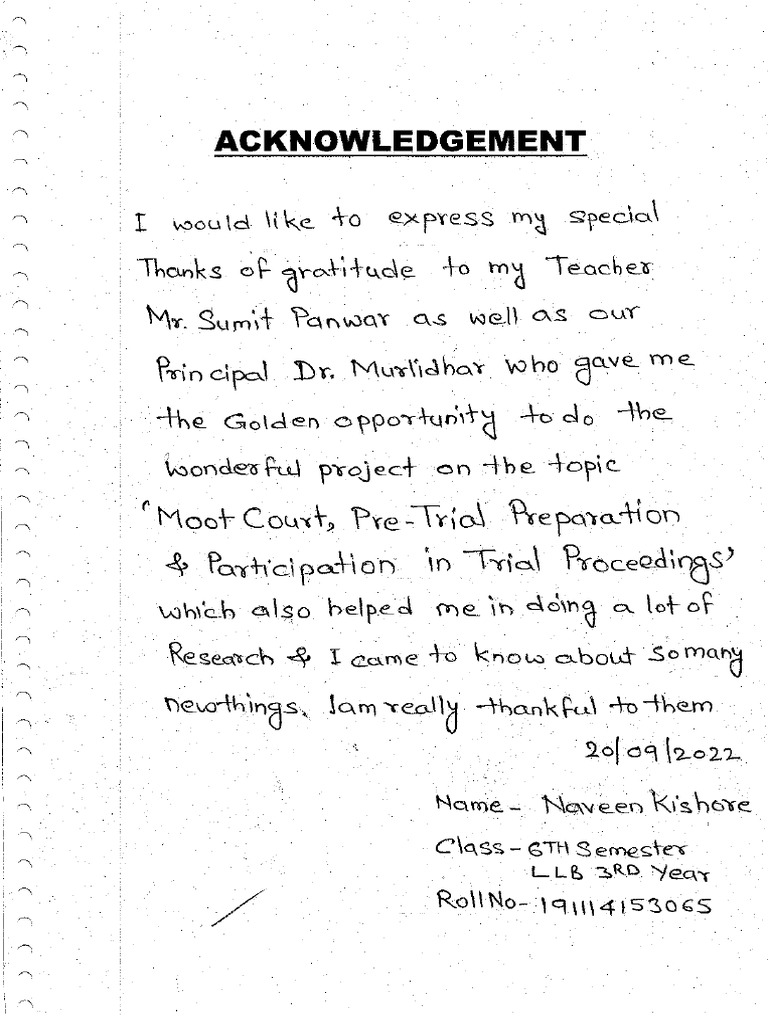 ACKNOWLEDGEMENT
I would like to express my special
Thanks of gratitude to my Teacher
Mr. Sumit Panwar as well as our
Principal Dr. Murlidhar who gave me
the Golden opportunity to do the
wonderful project on the topic
'Moot Court, Pre-Trial Preparation
& Participation in Trial Proceedings'
which also helped me in doing a lot of
Research & I came to know about so many
new things. I am really thankful to them
20/09/2022
Name - Naveen Kishore
Class - 6TH Semester
LLB 3RD Year
Roll No- 191114153065